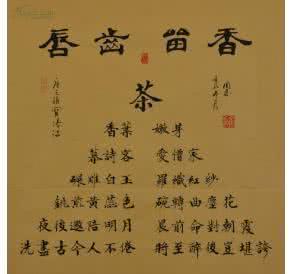 唇齒留香
茶
香葉 嫩芽
慕詩客 愛僧家
碾雕白玉 羅織紅紗
銚煎黃蕊色 碗轉曲塵花
夜後邀陪明月 晨前命對朝霞
洗盡古今人不倦 將至醉後豈堪誇
唐元稹寶塔詩